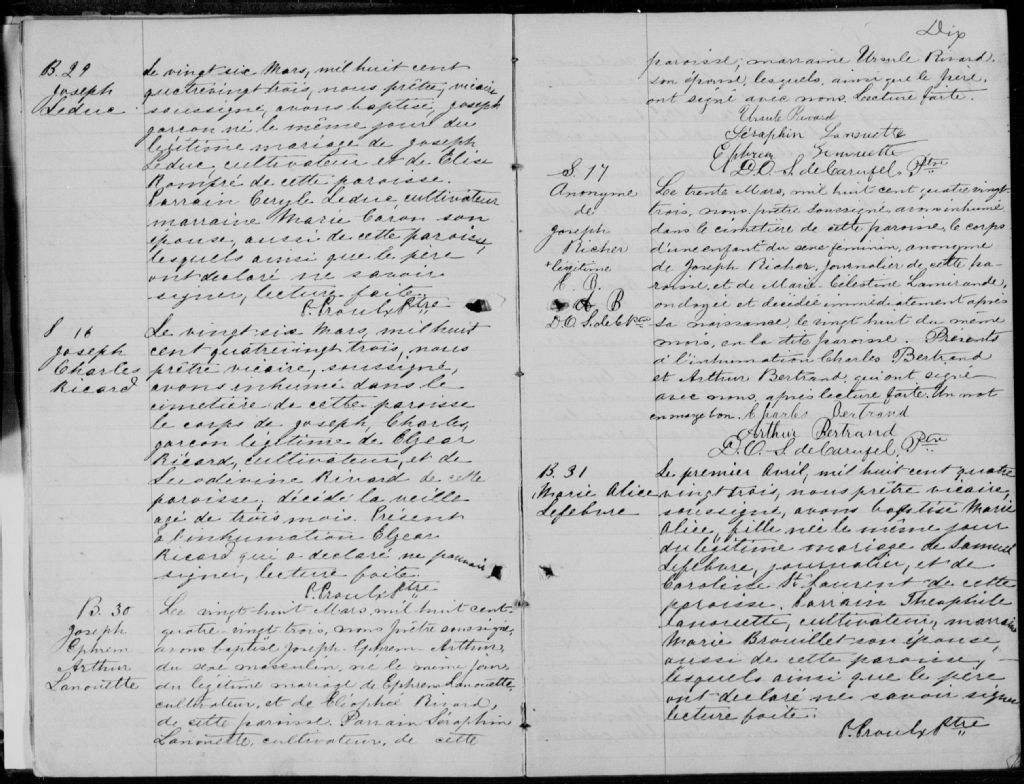 B. 29
Joseph
Leduc
Le vingt six Mars, mil huit cent
quatrevingt trois, nous prêtre, vicaire
soussigné, avons baptisé, Joseph
garçon né le même jour du
légitime mariage de Joseph
Leduc, cultivateur et de Elise
Rompré de cette paroisse.
Parrain Leduc, cultivateur
marraine Marie Caron son
épouse, aussi de cette paroisse
lesquels ainsi que le père
ont declaré ne savoir
signer, lecture faite.
P. Proulx Ptre
S 16
Joseph
Charles
Ricard
Le vingt six Mars, mil huit
cent quatrevingt trois, nous
prêtre vicaire, soussigné,
avons inhumé dans le
cimetière de cette paroisse
le corps de Joseph, Charles,
garçon légitime de Elzear
Ricard, cultivateur, et de
Rivard de cette
paroisse, décédé la veille
agé de trois mois. Présent
à l'inhumation Elzear
Ricard qui a declaré ne pouvoir
signer, lecture faite.
P. Proulx Ptre
B. 30
Joseph
Ephrem
Arthur
Lanouette
Le vingt huit Mars, mil huit cent
quatre vingt trois, nous prêtre soussigné,
avons baptisé Joseph Ephrem Arthur,
du sexe masculin, né le même jour
du légitime mariage de Ephrem Lanouette,
cultivateur, et de Cléophée Rivard,
de cette paroisse. Parrain Séraphin
Lanouette, cultivateur, de cette
Dix
paroisse; marraine Ursule Rivard,
son épouse, lesquels, ainsi que le père,
ont signé avec nous. Lecture faite.
Ursule Rivard
Séraphin Lanouette
Ephrem Lanouette
D.O.S. de Carufel, Ptre
S. 17
Anonyme
de
Joseph
Richer
légitime
D.O.S. de C. Ptre
Le trente Mars, mil huit cent quatre vingt-
trois, nous prêtre soussigné, avons inhumé
dans le cimetière de cette paroisse, le corps
d'une enfant du sexe féminin, anonyme
de Joseph Richer, journalier, de cette pa-
roisse, et de Marie Célestine Lamirande,
ondoyée et décédée immédiatement après
sa naissance, le vingt huit du même
mois, en la dite paroisse. Présents
à l'inhumation Charles Bertrand
et Arthur Bertrand, qui ont signé
avec nous, après lecture faite. Un mot
en marge bon. Charles Bertrand
Arthur Bertrand
D.O.S. de Carufel, Ptre
B. 31
Marie Alice
Lefebvre
Le premier Avril, mil huit cent quatre
vingt trois, nous prêtre vicaire,
soussigné, avons baptisé Marie
Alice, fille née le même jour
du légitime mariage de Samuel
Lefebvre, journalier, et de
Caroline St. Laurent de cette
paroisse. Parrain Théophile
Lanouette, cultivateur, marraine
Marie Brouillet son épouse,
aussi de cette paroisse,
lesquels ainsi que le père
ont déclaré ne savoir signer
lecture faite.
P. Proulx Ptre